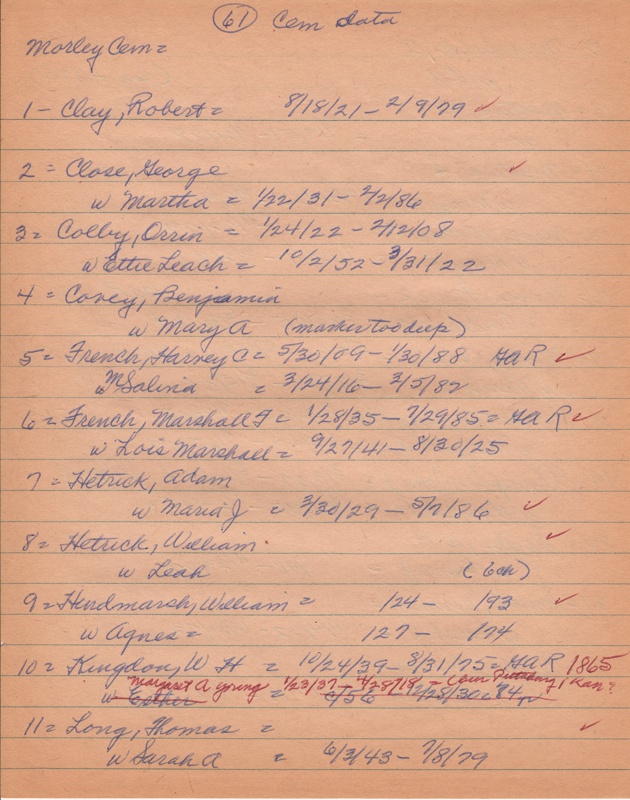 61 Cem Data
Morley Cem =
1 - Clay, Robert = 8/18/21 - 2/9/79 ✓
2 = Close, George ✓
w Martha = 1/22/31 - 2/2/86
3 = Colby, Orrin = 1/24/22 - 2/12/08
w Ettie Leach = 10/2/52 - 3/31/22
4 = Covey, Benjamin
w Mary A (marker too deep)
5 = French, Harvey C = 5/30/09 - 1/30/88 GAR ✓
w M Salina = 3/24/16 - 2/5/82
6 = French, Marshall F = 1/28/35 - 7/29/85 = GAR ✓
w Lois Marshall = 9/27/41 - 8/30/25
7 = Hetrick, Adam
w Maria J = 3/30/29 - 5/7/86 ✓
8 = Hetrick, William ✓
w Leah (6ch)
9 = Hindmarsh, William = 124 - 193 ✓
w Agnes = 127 - 174
10 = Kingdon, W H = 10/24/39 - 8/31/75 = GAR 1865
Margaret A young 1/23/37 - 4/28/18 - (Cem Kan?
w Esther = 6/56 - 12/28/30
11 = Long, Thomas = ✓
w Sarah A = 6/3/43 - 7/8/79